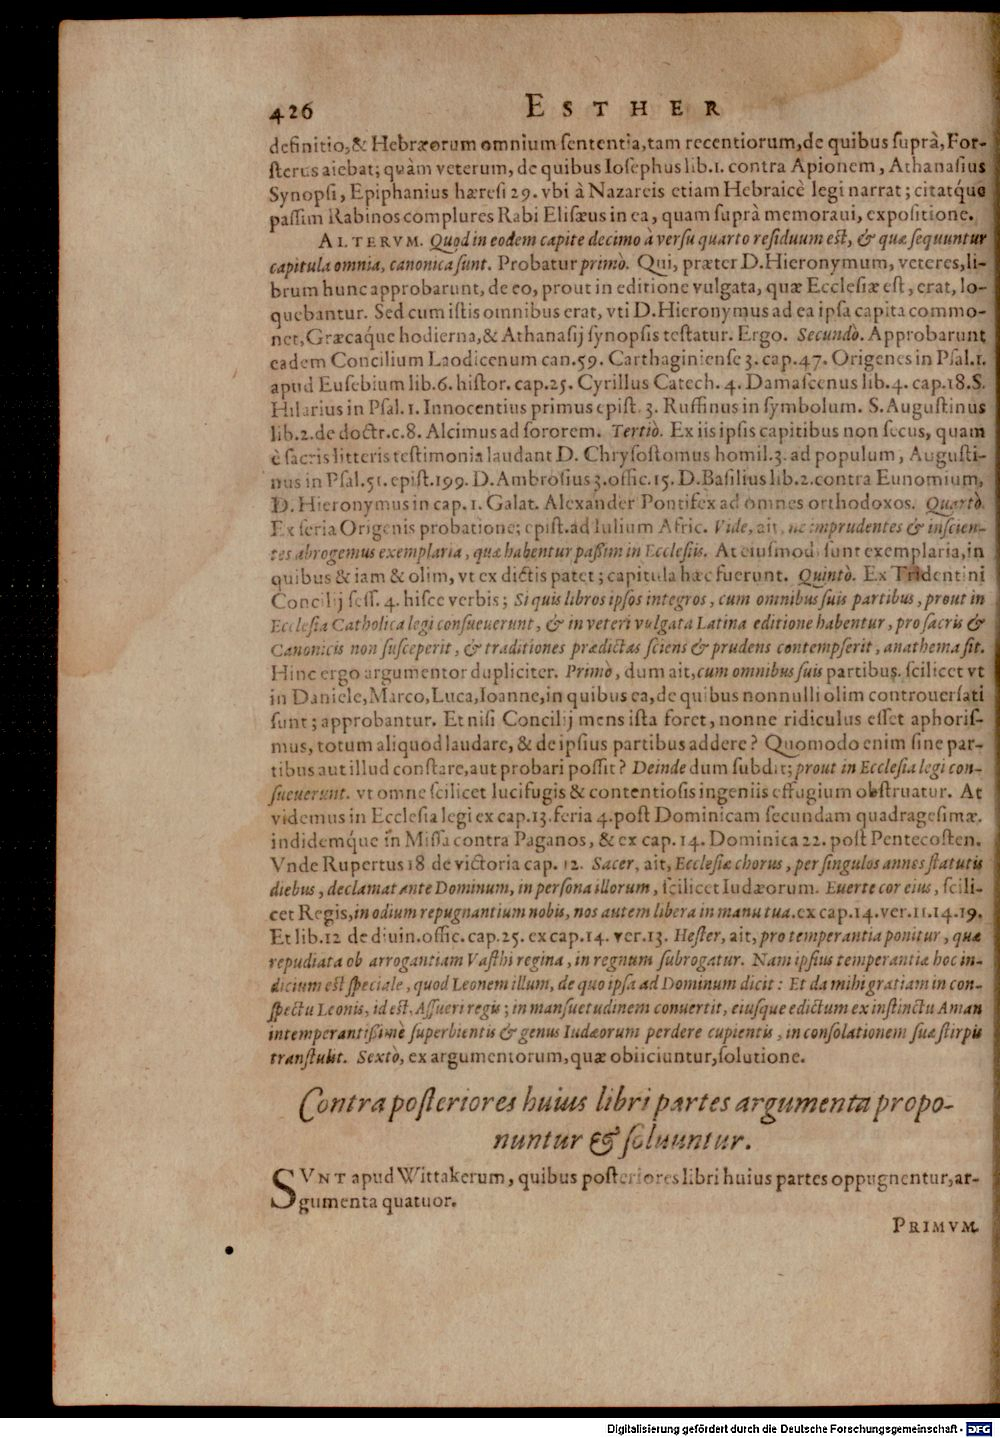 426 ESTHER
definitio, & Hebræorum omnium sententia, tam recentiorum, de quibus suprà, For-
sterus aiebat; quàm veterum, de quibus Iosephus lib.1. contra Apionem, Athanasius
Synopsi, Epiphanius hæresi 29. vbi à Nazareis etiam Hebraicè legi narrat; citatq́ue
passim Rabinos complures Rabi Elisæus in ea, quam suprà memoraui, expositione.
ALTERVM. Quod in eodem capite decimo à versu quarto residuum est, & quæ sequuntur
capitula omnia, canonica sunt. Probatur primò. Qui, præter D. Hieronymum, veteres, li-
brum hunc approbarunt, de eo, prout in editione vulgata, quæ Ecclesiæ est, erat, lo-
quebantur. Sed cum istis omnibus erat, vti D. Hieronymus ad ea ipsa capita commo-
net, Græcaq́ue hodierna, & Athanasij synopsis testatur. Ergo. Secundò. Approbarunt
eadem Concilium Laodicenum can.59. Carthaginiense 3. cap.47. Origenes in Psal.1.
apud Eusebium lib.6. histor. cap.25. Cyrillus Catech. 4. Damascenus lib.4. cap.18. S.
Hilarius in Psal.1. Innocentius primus epist. 3. Ruffinus in symbolum. S. Augustinus
lib.2. de doctr. c.8. Alcimus ad sororem. Tertiò. Ex iis ipsis capitibus non secus, quam
è sacris litteris testimonia laudant D. Chrysostomus homil.3. ad populum, Augusti-
nus in Psal.51. epist.199. D. Ambrosius 3. offic.15. D. Basilius lib.2. contra Eunomium,
D. Hieronymus in cap.1. Galat. Alexander Pontifex ad omnes orthodoxos. Quartò.
Ex seria Origenis probatione; epist. ad Iulium Afric. Vide, ait, ne imprudentes & inscien-
tes abrogemus exemplaria, quæ habentur passim in Ecclesiis. At eiusmodi sunt exemplaria, in
quibus & iam & olim, vt ex dictis patet; capitula hæc fuerunt. Quintò. Ex Tridentini
Concilij sess. 4. hisce verbis; Si quis libros ipsos integros, cum omnibus suis partibus, prout in
Ecclesia Catholica legi consueuerunt, & in veteri vulgata Latina editione habentur, pro sacris &
Canonicis non susceperit, & traditiones prædictas sciens & prudens contempserit, anathema sit.
Hinc ergo argumentor dupliciter. Primò, dum ait, cum omnibus suis partibus. scilicet vt
in Daniele, Marco, Luca, Ioanne, in quibus ea, de quibus nonnulli olim controuersati
sunt; approbantur. Et nisi Concilij mens ista foret, nonne ridiculus esset aphoris-
mus, totum aliquod laudare, & de ipsius partibus addere? Quomodo enim sine par-
tibus aut illud constare, aut probari possit? Deinde dum subdit; prout in Ecclesia legi con-
sueuerunt. vt omne scilicet lucifugis & contentiosis ingeniis effugium obstruatur. At
videmus in Ecclesia legi ex cap.13. feria 4. post Dominicam secundam quadragesimæ.
indidemq́ue in Missa contra Paganos, & ex cap. 14. Dominica 22. post Pentecosten.
Vnde Rupertus 18 de victoria cap. 12. Sacer, ait, Ecclesiæ chorus, per singulos annes statutis
diebus, declamat ante Dominum, in persona illorum, scilicet Iudæorum. Euerte cor eius, scili-
cet Regis, in odium repugnantium nobis, nos autem libera in manu tua. ex cap.14. ver.11.14.19.
Et lib.12 de diuin. offic. cap.25. ex cap.14. ver.13. Hester, ait, pro temperantia ponitur, quæ
repudiata ob arrogantiam Vasthi regina, in regnum subrogatur. Nam ipsius temperantiæ hoc in-
dicium est speciale, quod Leonem illum, de quo ipsa ad Dominum dicit: Et da mihi gratiam in con-
spectu Leonis, id est, Assueri regis; in mansuetudinem conuertit, eiusque edictum ex instinctu Aman
intemperantissimè superbientis & genus Iudæorum perdere cupientis, in consolationem suæ stirpis
transtulit. Sextò, ex argumentorum, quæ obiiciuntur, solutione.
Contra posteriores huius libri partes argumenta propo-
nuntur & soluuntur.
SVNT apud Wittakerum, quibus posteriores libri huius partes oppugnentur, ar-
gumenta quatuor.
PRIMVM.
Digitalisierung gefördert durch die Deutsche Forschungsgemeinschaft - DFG